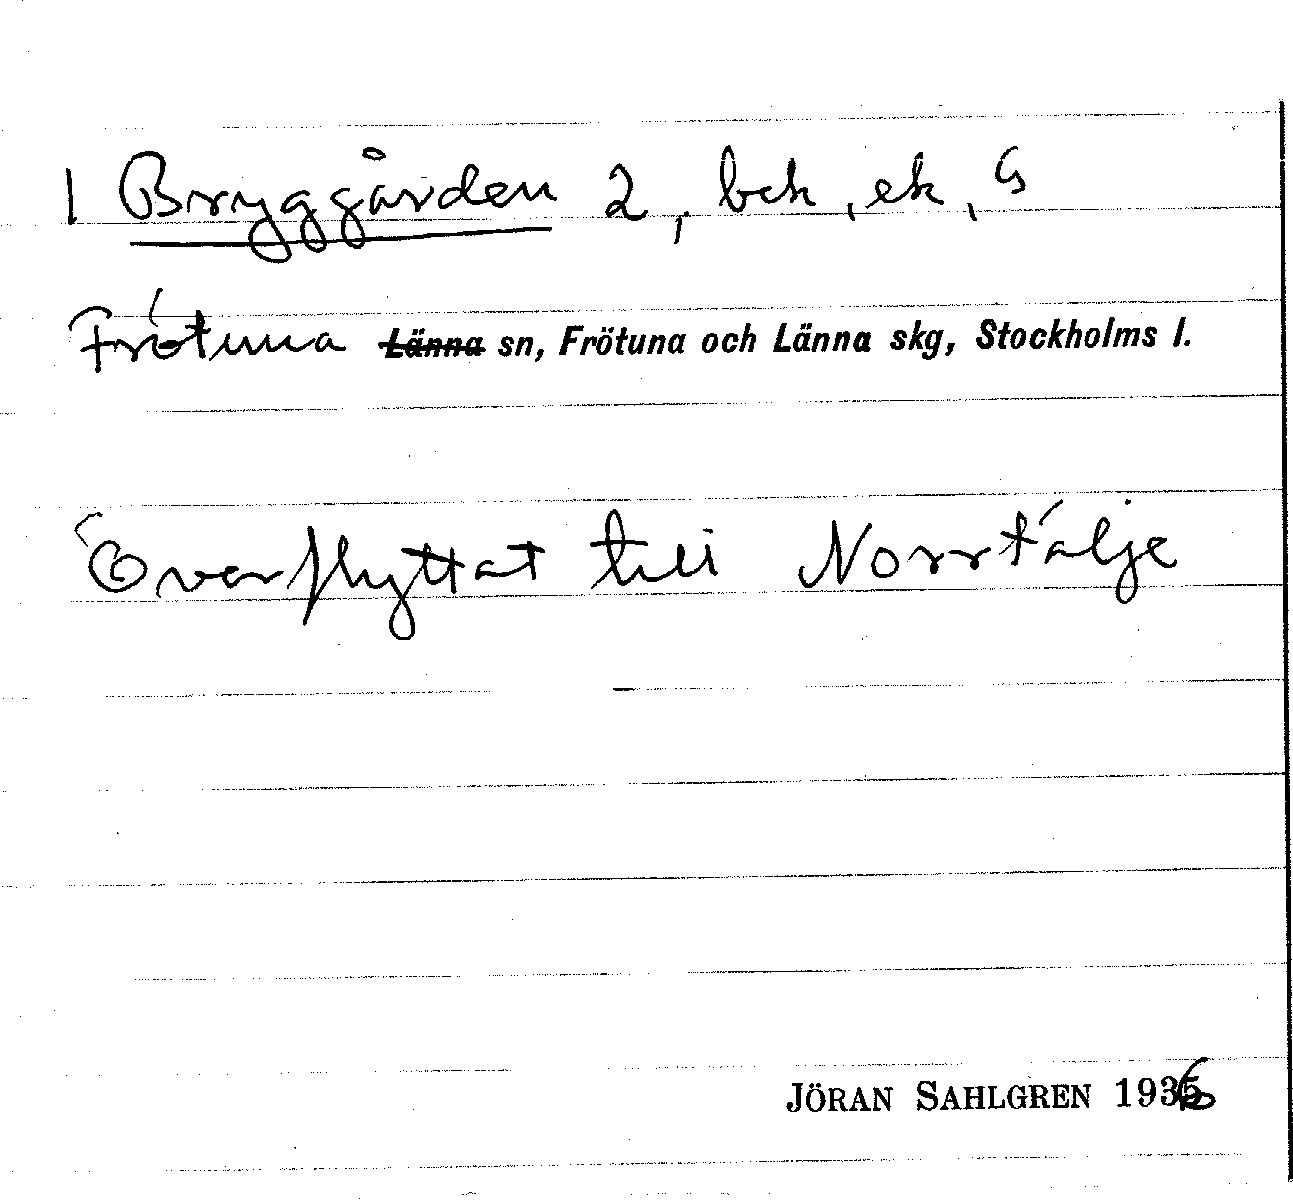 1 Bryggården 2, bck, ek, G
Frötuna Länna sn, Frötuna och Länna skg, Stockholms l.
Överflyttat till Norrtälje
JÖRAN SAHLGREN 1936